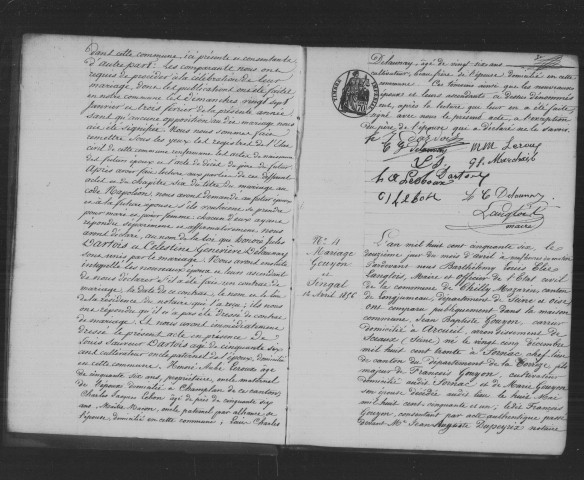 dant cette commune ici présente et consentante
d'autre part. Les comparants nous ont
requis de procéder à la célébration de leur
mariage dont les publications ont été faites
en notre commune les Dimanches vingt sept
Janvier et trois février de la présente année
sans qu'aucune opposition au dit mariage nous
ait été signifiée. Nous nous sommes fait
remettre sous les yeux les registres de l'Etat
civil de cette commune renfermant les actes de naissance
des futurs époux et l'acte de décès du père du futur
Après avoir fait lecture aux parties de ces différents
actes et du chapitre six du titre du mariage au
code Napoléon, nous avons demandé au futur époux
et à la future épouse s'ils veulent se prendre
pour mari et pour femme; chacun d'eux ayant
répondu séparément et affirmativement, nous
avons déclaré, au nom de la loi, que Louis Jules
Dartois et Célestine Geneviève Delaunay
sont unis par le mariage. Nous avons ensuite
interpellé les nouveaux époux et leurs ascendants
de nous déclarer s'il a été fait un contrat de
mariage, la date de ce contrat, le nom et le lieu
de la résidence du notaire qui l'a reçu; ils nous
ont répondu qu'il n'a pas été dressé de contrat
de mariage. Et nous avons immédiatement
dressé le présent acte en présence de
Louis Sauveur Dartois âgé de cinquante six
ans cultivateur oncle paternel de l'époux, domicilié
en cette commune, Leroux âgé
de cinquante six ans, propriétaire, oncle maternel
de l'épouse domicilié à Champlan de ce canton,
Charles Lebon âgé de cinquante six
ans, oncle par alliance de
l'épouse, domicilié en cette commune; Louis Charles
Delaunay, âgé de vingt six ans
cultivateur, beau frère de l'épouse domicilié en cette
commune. Ces témoins ainsi que les nouveaux
époux et leurs ascendants ci dessus dénommés
ont, après la lecture que leur en a été faite,
signé avec nous le présent acte, à l'exception
du père de l'époux qui a déclaré ne le savoir.
Delaunay
maire
N° 4
Mariage
Gouyon
et
12 Avril 1856
L'an mil huit cent cinquante six, le
douzième jour du mois d'avril à neuf heures du matin
Pardevant nous Barthélemy Louis Elie
Langlois, Maire et officier de l'Etat civil
de la commune de Chilly Mazarin, canton
de Longjumeau, département de Seine et Oise
ont comparu publiquement dans la maison
commune Jean Baptiste Gouyon, carrier
domicilié à Arcueil, arrondissement de
Sceaux (Seine) né le vingt cinq décembre
mil huit cent trente à Sornac chef lieu
de canton du département de la Corrèze fils
majeur de François Gouyon, cultivateur
domicilié audit Sornac et de Marie Gouyon
son épouse décédée audit lieu le huit Mai
mil huit cent cinquante et un, ledit François
Gouyon, consentant par acte authentique passé
devant Me Jean Auguste Dupeyrix notaire